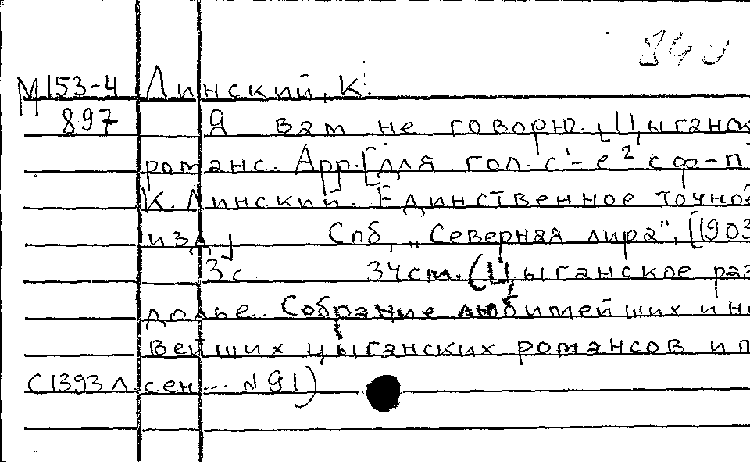 840
М153-4 Линский, К.
897 Я вам не говорю. [Цыганск
романс. Арр. [для гол. с¹-е² с ф-п]
К. Линский. Единственное точное
изд.] Спб, "Северная лира", [1903
3с. 34см. (Цыганское раз
долье. Собрание любимейших и но
вейших цыганских романсов и п
С1393л сен... №91)